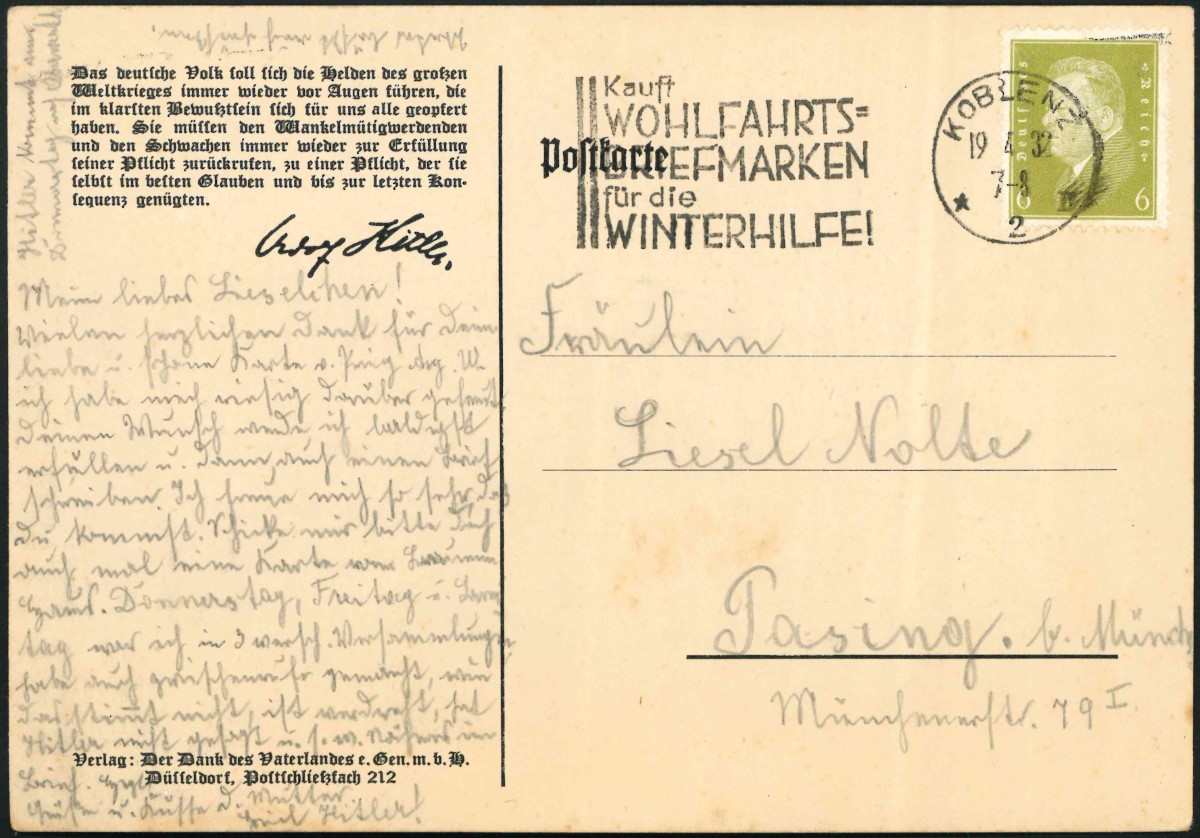 Das deutsche Volk soll sich die Helden des großen
Weltkrieges immer wieder vor Augen führen, die
im klarsten Bewußtsein sich für uns alle geopfert
haben. Sie müssen den Wankelmütigwerdenden
und den Schwachen immer wieder zur Erfüllung
seiner Pflicht zurückrufen, zu einer Pflicht, der sie
selbst im besten Glauben und bis zur letzten Kon-
sequenz genügten.
Adolf Hitler.
Hitler kommt am
Donnerstag
Mein liebes Lieselchen!
Vielen herzlichen Dank für Deine
liebe u. schöne Karte v.
ich habe mich riesig darüber gefreut.
Deinen Wunsch werde ich baldigst
erfüllen u. dann auch einen Brief
schreiben. Ich freue mich so sehr, daß
du kommst. Schicke mir bitte doch
auch mal eine Karte vom Braunen
Haus. Donnerstag, Freitag u. Sams
tag war ich in 3 versch. Versammlungen
habe auch Zwischenrufe gemacht, wie
das stimmt nicht, ist verdreht, hat
Hitler nicht gesagt u. s. w. Näheres im
Brief. Herzl.
Grüße u. Küsse d. Mutter
Heil Hitler!
Verlag: Der Dank des Vaterlandes e. Gen. m. b. H.
Düsseldorf, Postschließfach 212
Postkarte
Kauft
WOHLFAHRTS=
BRIEFMARKEN
für die
WINTERHILFE!
KOBLENZ
19 4. 32
7-8
2
Deutsches Reich
6 6
Fräulein
Liesel Nolte
Pasing. b. Münch
Münchenerstr. 79 I.